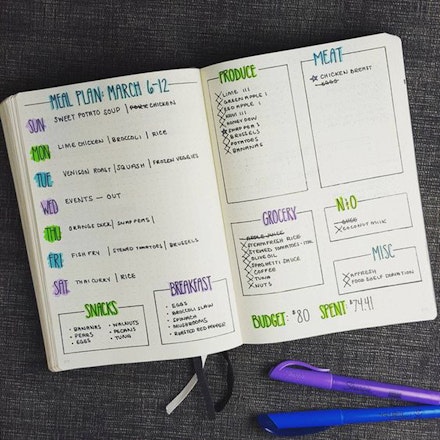 MEAL PLAN: MARCH 6-12
SUN SWEET POTATO SOUP | PORK CHICKEN
MON LIME CHICKEN | BROCCOLI | RICE
TUE VENISON ROAST | SQUASH | FROZEN VEGGIES
WED EVENTS — OUT
THU ORANGE DUCK | SNAP PEAS |
FRI FISH FRY | STEWED TOMATOES | BRUSSELS
SAT THAI CURRY | RICE
SNACKS
• BANANAS
• PEARS
• EGGS
• WALNUTS
• PECANS
• TUNA
BREAKFAST
• EGGS
• BROCCOLI SLAW
• SPINACH
• MUSHROOMS
• ROASTED RED PEPPER
PRODUCE
LIME III
GREEN APPLE I
RED APPLE I
KIWI III
HONEY DEW
SNAP PEAS
BRUSSELS
POTATOES
BANANAS
MEAT
CHICKEN BREAST
EGGS
GROCERY
APPLE JUICE
STEAMFRESH RICE
STEWED TOMATOES
OLIVE OIL
SPAGHETTI SAUCE
COFFEE
TUNA
NUTS
COCONUT MILK
MISC
FOOD SHELF DONATION
BUDGET: $80 SPENT $74.41